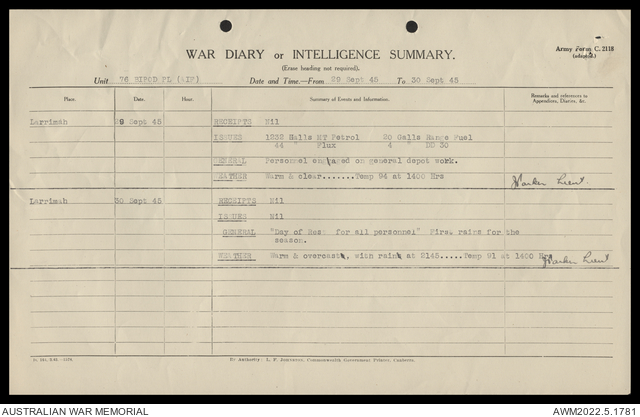 Army Form C. 2118
(adapted.)
WAR DIARY or INTELLIGENCE SUMMARY.
(Erase heading not required).
Unit 76 BIPOD PL (AIF) Date and Time.—From 29 Sept 45 To 30 Sept 45
Place. Date. Hour. Summary of Events and Information. Remarks and references to Appendices, Diaries, &c.
Larrimah 29 Sept 45 RECEIPTS Nil
ISSUES 1232 Halls MT Petrol 20 Galls Range Fuel
44 " Flux 4 " DO 30
GENERAL Personnel engaged on general depot work.
WEATHER Warm & clear.......Temp 94 at 1400 Hrs
Lieut.
Larrimah 30 Sept 45 RECEIPTS Nil
ISSUES Nil
GENERAL "Day of Rest for all personnel" First rains for the
season.
WEATHER Warm & overcast, with rain at 2145.....Temp 91 at 1400 Hrs
Lieut
By Authority: L. F. Johnston, Commonwealth Government Printer, Canberra.
AUSTRALIAN WAR MEMORIAL AWM2022.5.1781